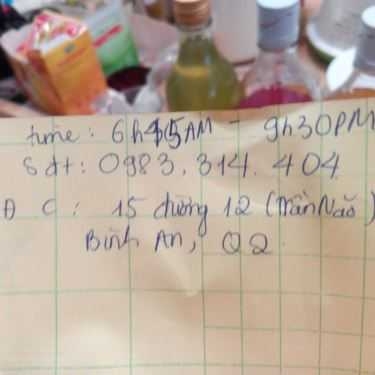 time: 6h45AM - 9h30PM
Sđt: 0983.314.404
Đ C: 15 đường 12 (Trần Não)
Bình An, Q2.